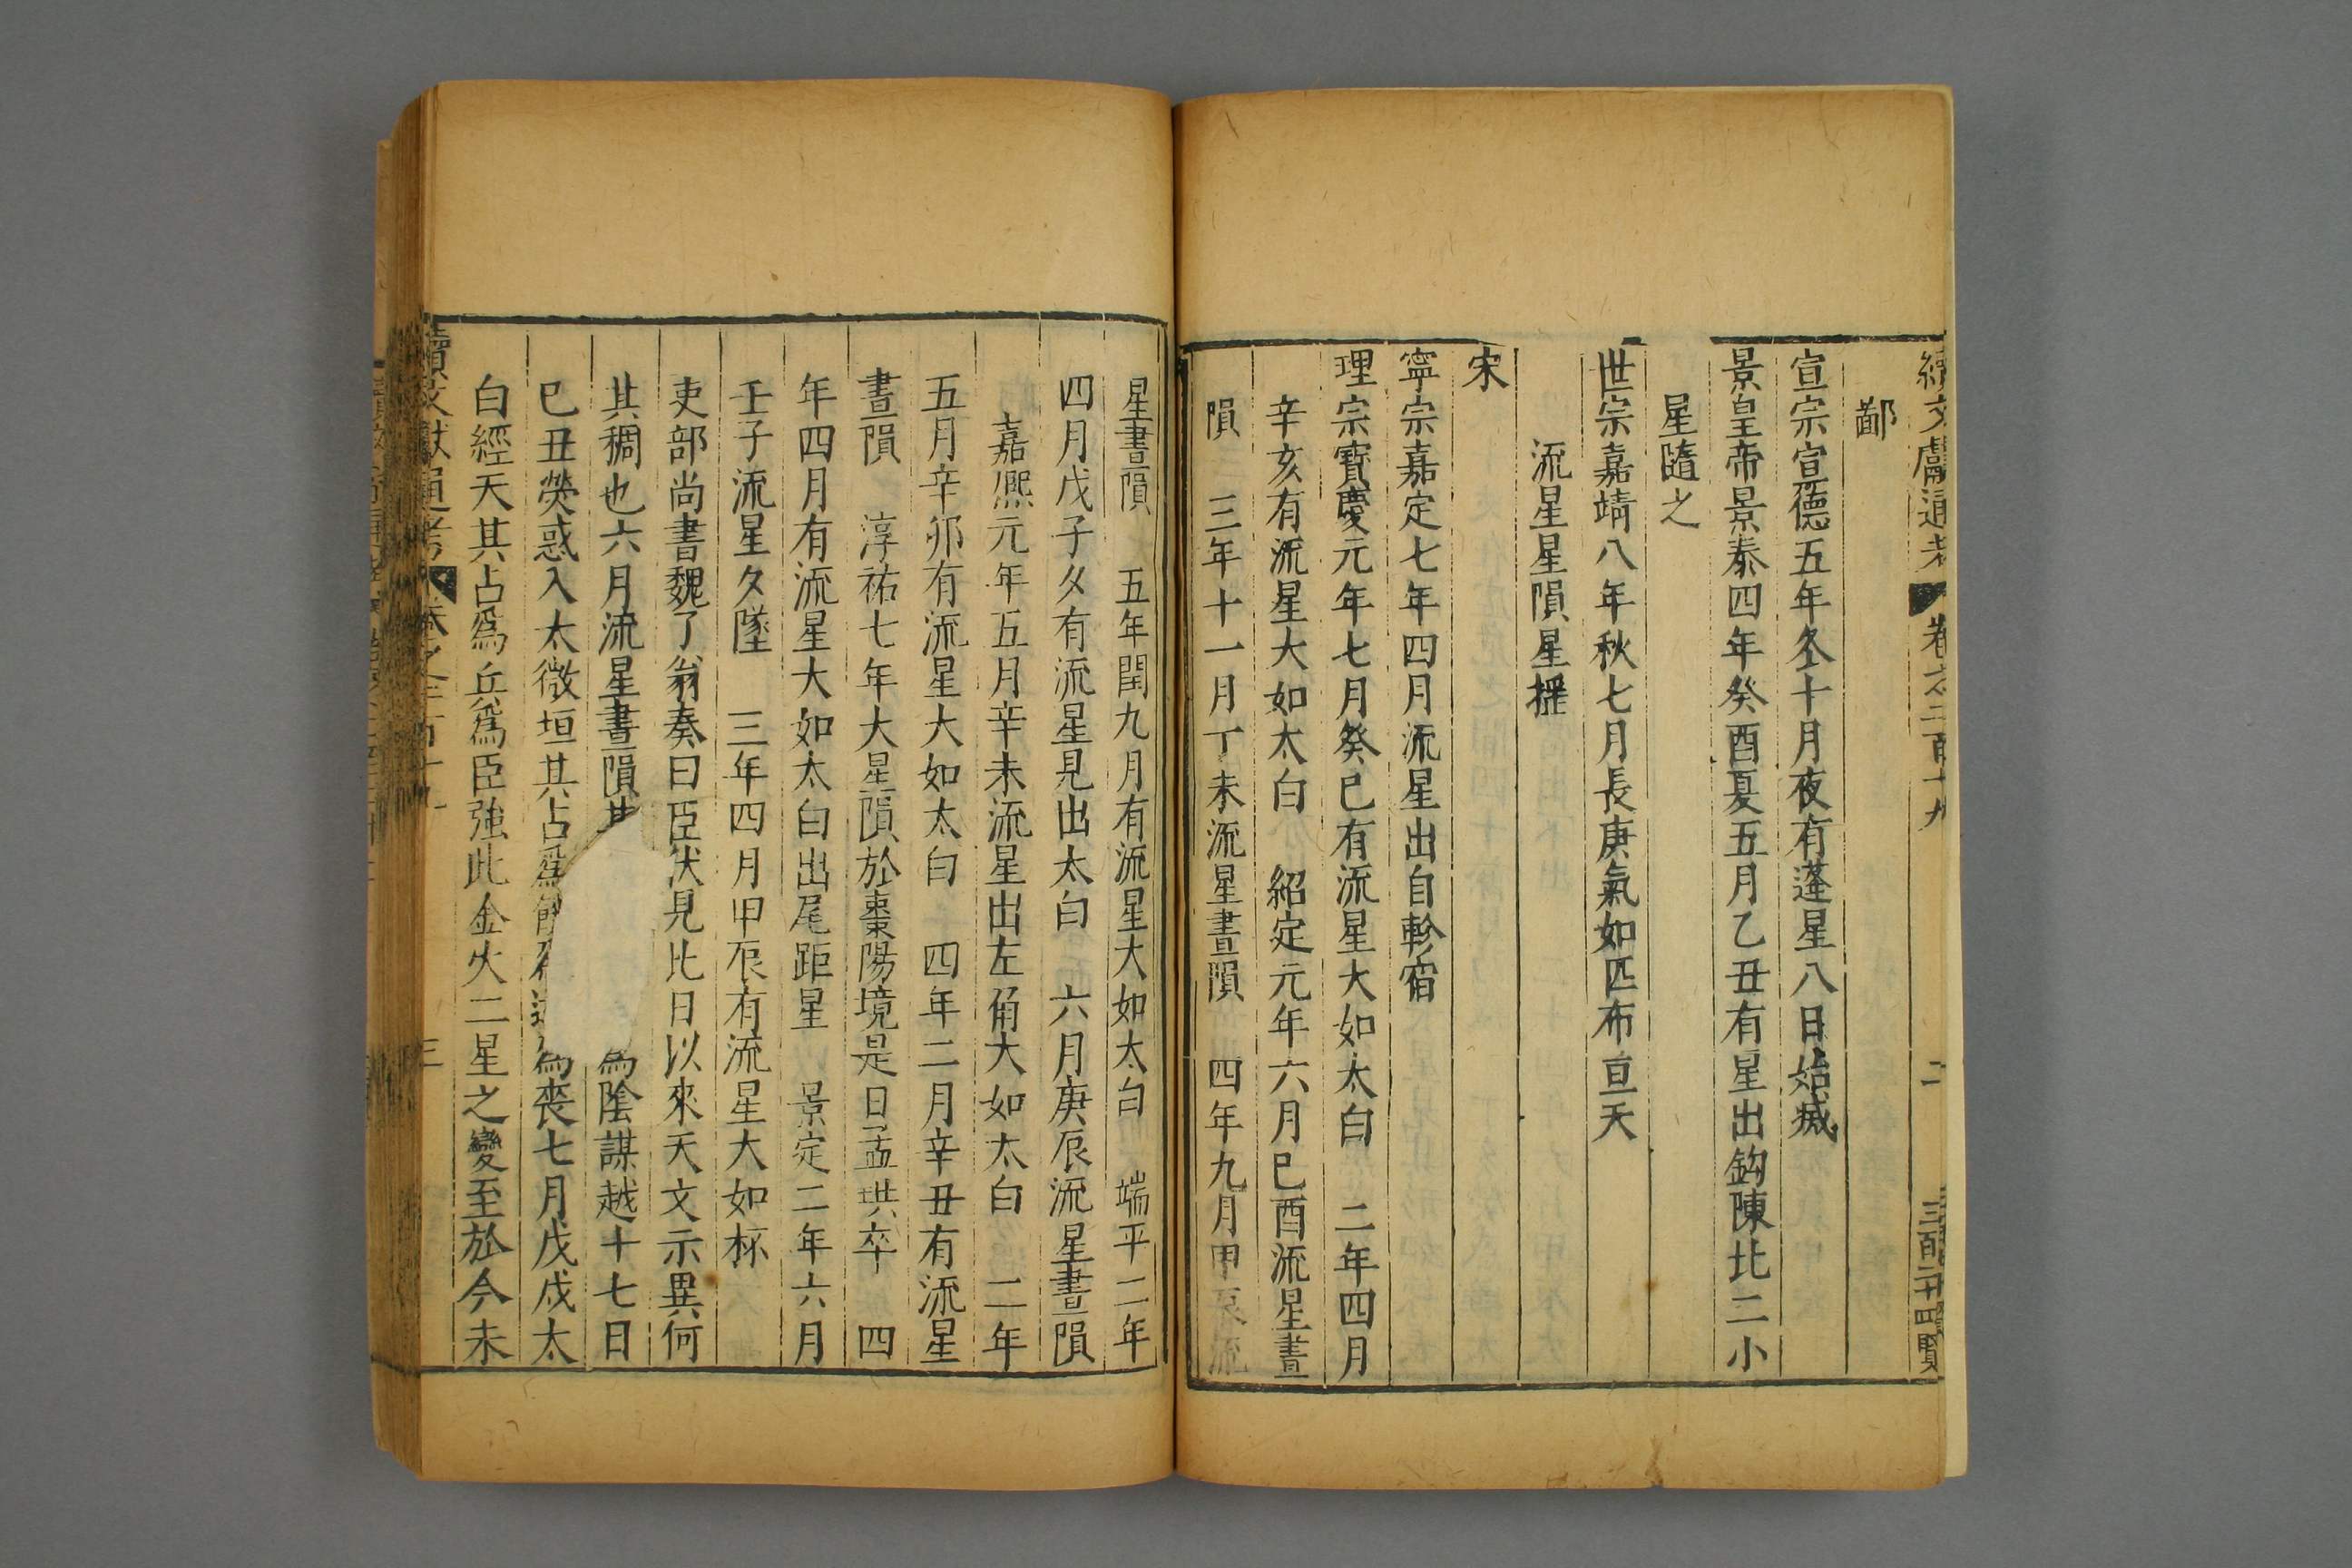 續文獻通考 卷之二百十九 二 三百二十四 賢
鄙
宣宗宣德五年冬十月夜有蓬星八日始滅
景皇帝景泰四年癸酉夏五月乙丑有星出鈎陳北二小
星隨之
世宗嘉靖八年秋七月長庚氣如匹布亘天
流星星隕星搖
宋
寧宗嘉定七年四月流星出自軫宿
理宗寶慶元年七月癸巳有流星大如太白 二年四月
辛亥有流星大如太白 紹定元年六月巳酉流星晝
隕 三年十一月丁未流星晝隕 四年九月甲辰流
星晝隕 五年閏九月有流星大如太白 端平二年
四月戊子夕有流星見出太白 六月庚辰流星晝隕
嘉熈元年五月辛未流星出左角大如太白 二年
五月辛卯有流星大如太白 四年二月辛丑有流星
晝隕 淳祐七年大星隕於棗陽境是日孟珙卒 四
年四月有流星大如太白出尾距星 景定二年六月
壬子流星夕墜 三年四月甲辰有流星大如杯
吏部尚書魏了翁奏曰臣伏見比日以來天文示異何
其稠也六月流星晝隕其 爲陰謀越十七日
巳丑熒惑入太微垣其占爲 爲喪七月戊戌太
白經天其占爲兵爲臣強此金火二星之變至於今未
續文獻通考 卷之二百十九 三